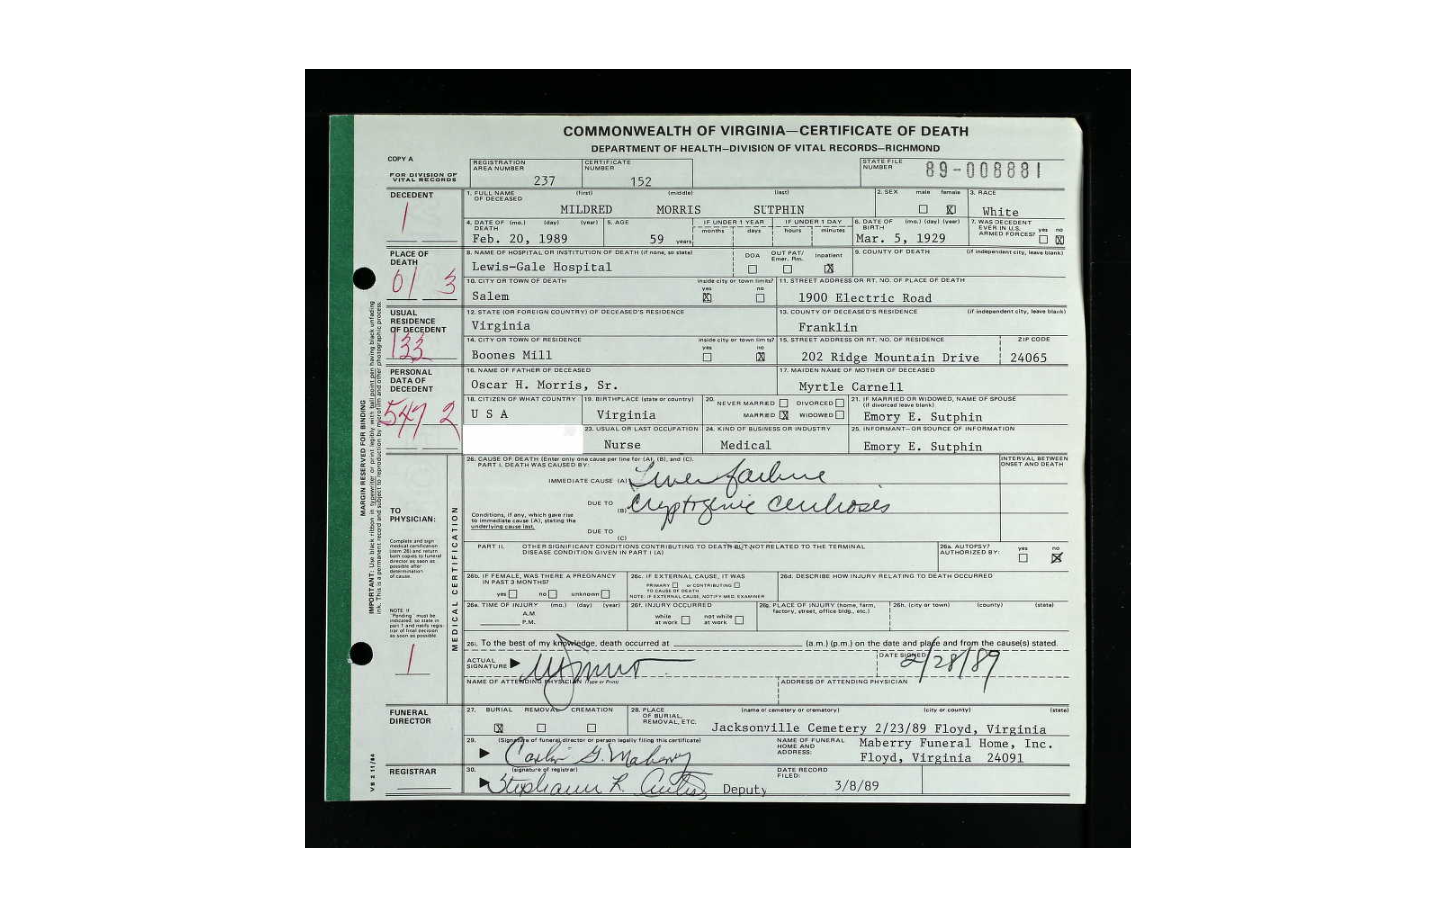 COMMONWEALTH OF VIRGINIA—CERTIFICATE OF DEATH
DEPARTMENT OF HEALTH—DIVISION OF VITAL RECORDS—RICHMOND
COPY A
FOR DIVISION OF VITAL RECORDS
REGISTRATION AREA NUMBER 237
CERTIFICATE NUMBER 152
STATE FILE NUMBER 89-008881
DECEDENT
1
1. FULL NAME OF DECEASED (first) (middle) (last)
MILDRED MORRIS SUTPHIN
2. SEX male female X
3. RACE White
4. DATE OF DEATH (mo.) (day) (year)
Feb. 20, 1989
5. AGE 59 years
IF UNDER 1 YEAR months days
IF UNDER 1 DAY hours minutes
6. DATE OF BIRTH (mo.) (day) (year)
Mar. 5, 1929
7. WAS DECEDENT EVER IN U.S. ARMED FORCES? yes no X
PLACE OF DEATH
61 3
8. NAME OF HOSPITAL OR INSTITUTION OF DEATH (if none, so state)
Lewis-Gale Hospital
DOA OUT PAT/ Emer. Rm. Inpatient X
9. COUNTY OF DEATH (if independent city, leave blank)
10. CITY OR TOWN OF DEATH inside city or town limits? yes X no
Salem
11. STREET ADDRESS OR RT. NO. OF PLACE OF DEATH
1900 Electric Road
USUAL RESIDENCE OF DECEDENT
133
12. STATE (OR FOREIGN COUNTRY) OF DECEASED'S RESIDENCE
Virginia
13. COUNTY OF DECEASED'S RESIDENCE (if independent city, leave blank)
Franklin
14. CITY OR TOWN OF RESIDENCE inside city or town limits? yes no X
Boones Mill
15. STREET ADDRESS OR RT. NO. OF RESIDENCE ZIP CODE
202 Ridge Mountain Drive 24065
PERSONAL DATA OF DECEDENT
547 2
16. NAME OF FATHER OF DECEASED
Oscar H. Morris, Sr.
17. MAIDEN NAME OF MOTHER OF DECEASED
Myrtle Carnell
18. CITIZEN OF WHAT COUNTRY
U S A
19. BIRTHPLACE (state or country)
Virginia
20. NEVER MARRIED DIVORCED
MARRIED X WIDOWED
21. IF MARRIED OR WIDOWED, NAME OF SPOUSE (if divorced leave blank)
Emory E. Sutphin
23. USUAL OR LAST OCCUPATION
Nurse
24. KIND OF BUSINESS OR INDUSTRY
Medical
25. INFORMANT—OR SOURCE OF INFORMATION
Emory E. Sutphin
MARGIN RESERVED FOR BINDING
IMPORTANT: Use black ribbon in typewriter or print legibly with ball point pen having black unfading
ink. This is a permanent record and subject to reproduction by microfilm and other photographic process.
TO PHYSICIAN:
Complete and sign medical certification (item 26) and return both copies to funeral director as soon as possible after determination of cause.
NOTE: If "Pending" must be indicated, so state in part 1 and notify registrar of final decision as soon as possible
1
MEDICAL CERTIFICATION
26. CAUSE OF DEATH (Enter only one cause per line for (A), (B), and (C).
PART I. DEATH WAS CAUSED BY:
INTERVAL BETWEEN ONSET AND DEATH
IMMEDIATE CAUSE (A) Liver failure
DUE TO (B) Cryptogenic cirrhosis
Conditions, if any, which gave rise to immediate cause (A), stating the underlying cause last.
DUE TO (C)
PART II. OTHER SIGNIFICANT CONDITIONS CONTRIBUTING TO DEATH BUT NOT RELATED TO THE TERMINAL DISEASE CONDITION GIVEN IN PART I (A)
26a. AUTOPSY? AUTHORIZED BY: yes no X
26b. IF FEMALE, WAS THERE A PREGNANCY IN PAST 3 MONTHS?
yes no unknown
26c. IF EXTERNAL CAUSE, IT WAS
PRIMARY or CONTRIBUTING TO CAUSE OF DEATH
NOTE: IF EXTERNAL CAUSE, NOTIFY MED. EXAMINER
26d. DESCRIBE HOW INJURY RELATING TO DEATH OCCURRED
26e. TIME OF INJURY (mo.) (day) (year)
A.M.
P.M.
26f. INJURY OCCURRED
while at work not while at work
26g. PLACE OF INJURY (home, farm, factory, street, office bldg., etc.)
26h. (city or town) (county) (state)
26i. To the best of my knowledge, death occurred at (a.m.) (p.m.) on the date and place and from the cause(s) stated.
ACTUAL SIGNATURE
DATE SIGNED 2/28/89
NAME OF ATTENDING PHYSICIAN (Type or Print)
ADDRESS OF ATTENDING PHYSICIAN
FUNERAL DIRECTOR
27. BURIAL REMOVAL CREMATION
X
28. PLACE OF BURIAL, REMOVAL, ETC. (name of cemetery or crematory) (city or county) (state)
Jacksonville Cemetery 2/23/89 Floyd, Virginia
29. (Signature of funeral director or person legally filing this certificate)
NAME OF FUNERAL HOME AND ADDRESS:
Maberry Funeral Home, Inc.
Floyd, Virginia 24091
REGISTRAR
30. (signature of registrar)
Stephanie R. Curtis Deputy
DATE RECORD FILED:
3/8/89
VS 2 11/84